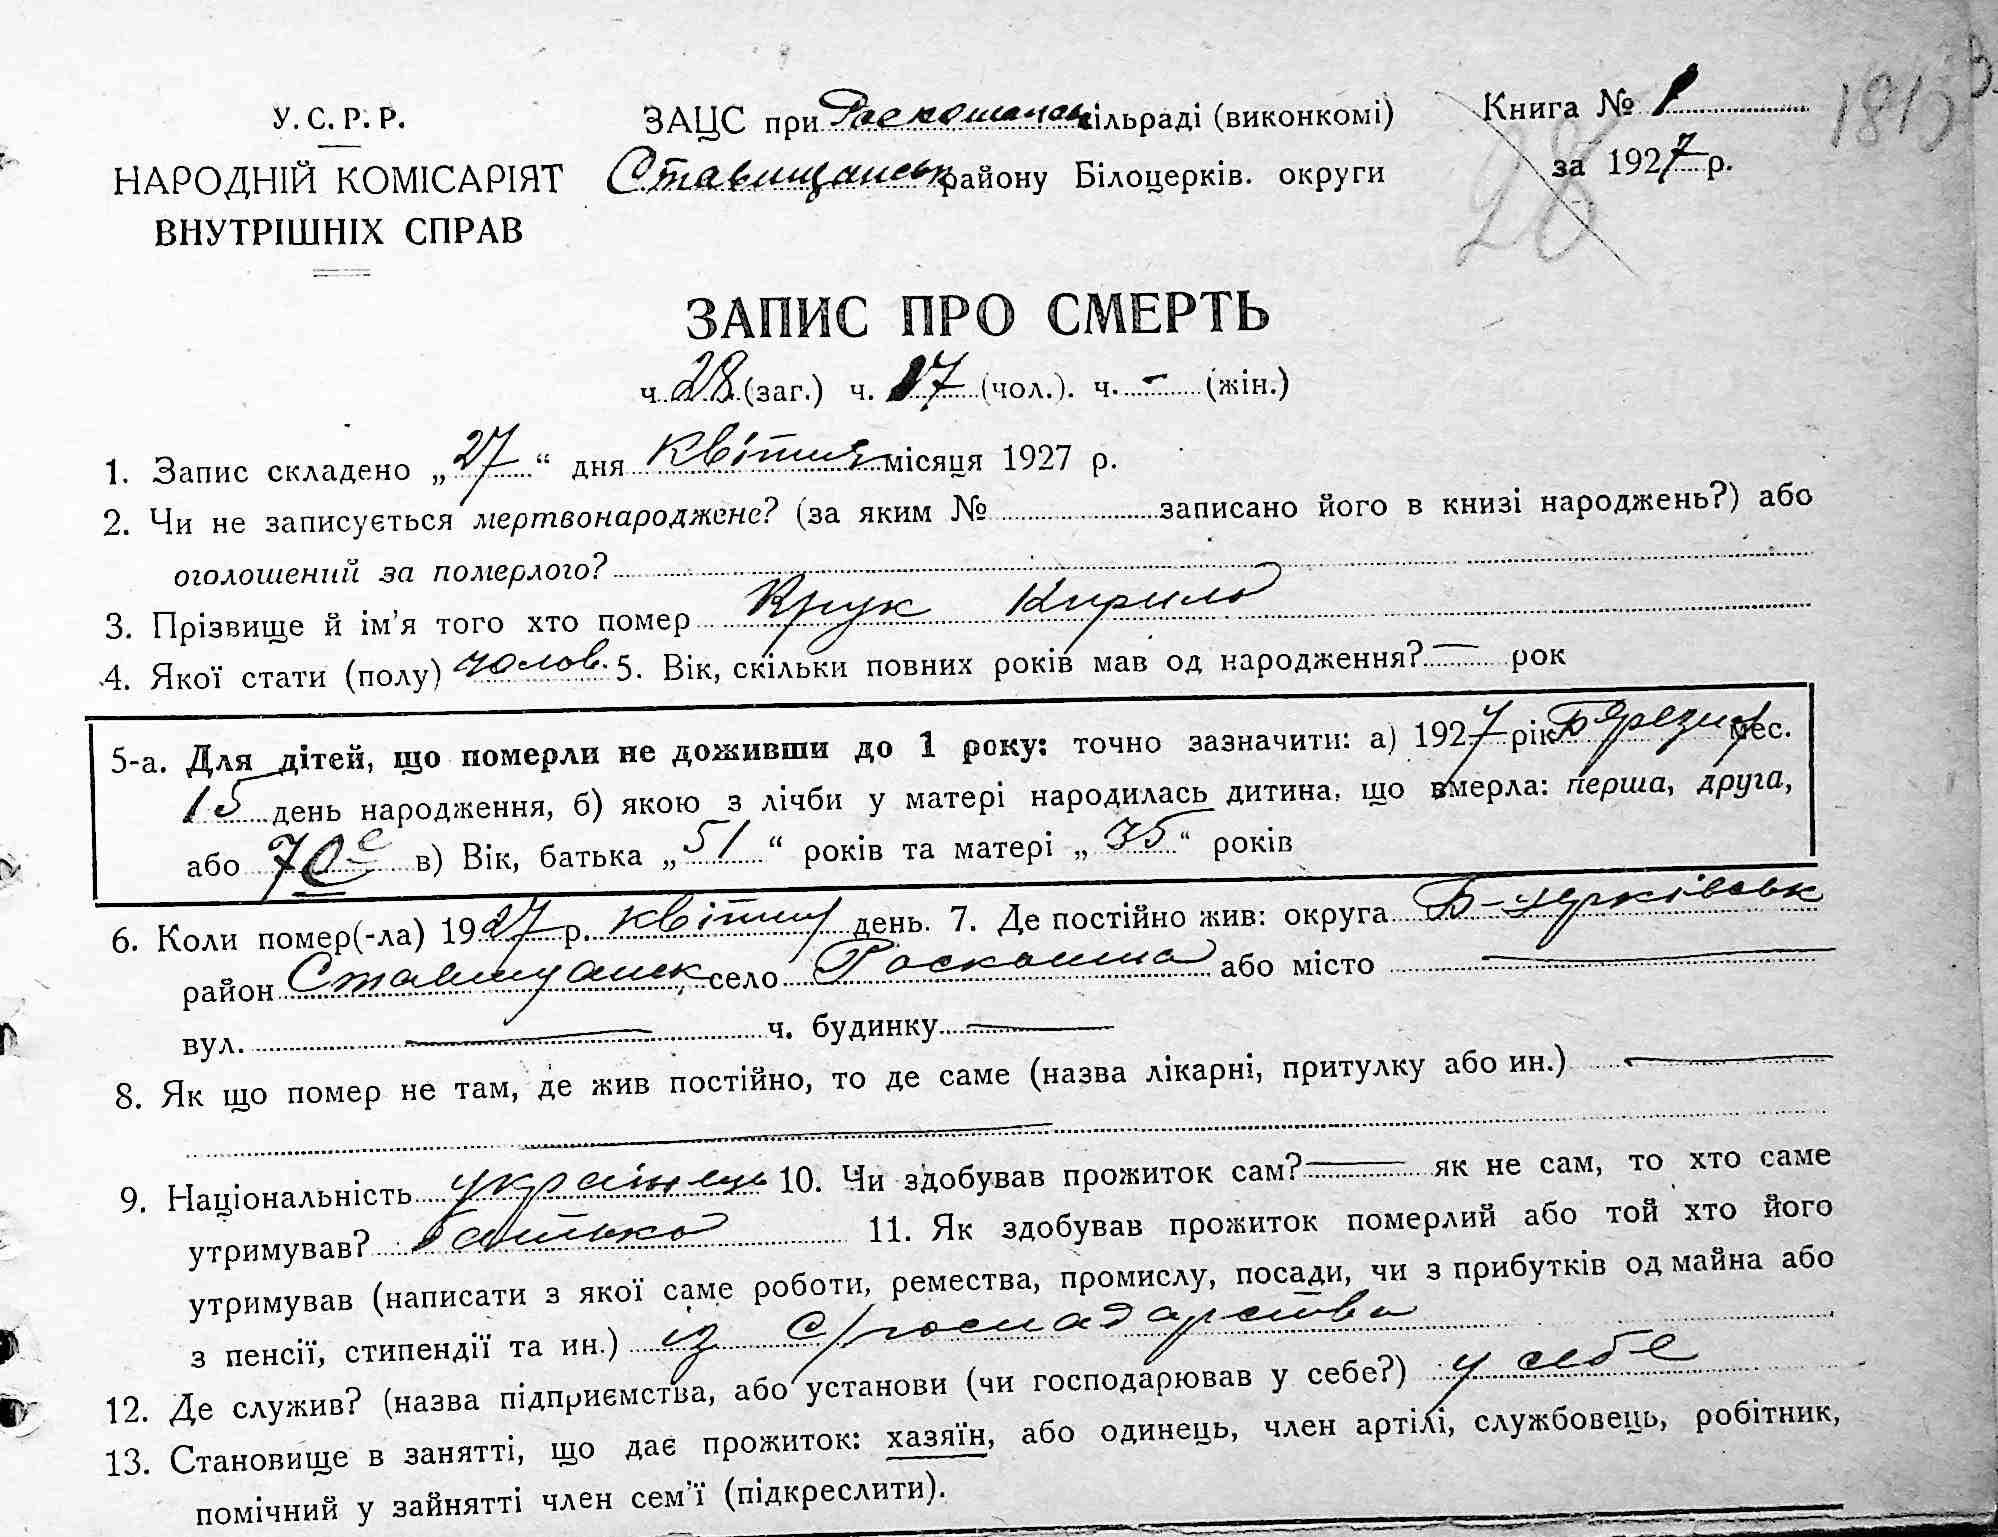 У. С. Р. Р.
НАРОДНІЙ КОМІСАРІЯТ
ВНУТРІШНІХ СПРАВ
ЗАЦС при Роскошанськ сільраді (виконкомі)
Ставищанськ району Білоцерків. округи
Книга № 1
за 1927 р.
28
ЗАПИС ПРО СМЕРТЬ
ч. 28 (заг.) ч. 17 (чол.). ч. - (жін.)
1. Запис складено „27“ дня квітня місяця 1927 р.
2. Чи не записується мертвонароджене? (за яким № записано його в книзі народжень?) або
оголошений за померлого?
3. Прізвище й ім'я того хто помер Крук Кирило
4. Якої стати (полу) чолов. 5. Вік, скільки повних років мав од народження? — рок
5-а. Для дітей, що померли не доживши до 1 року: точно зазначити: а) 1927 рік Березня мес.
15 день народження, б) якою з лічби у матері народилась дитина, що вмерла: перша, друга,
або 7е в) Вік, батька „51“ років та матері „35“ років
6. Коли помер(-ла) 1927 р. квітня день. 7. Де постійно жив: округа Б-Церківськ
район Ставищанськ село Роскошна або місто —
вул. — ч. будинку —
8. Як що помер не там, де жив постійно, то де саме (назва лікарні, притулку або ин.) —
9. Національність українець 10. Чи здобував прожиток сам? — як не сам, то хто саме
утримував? батько 11. Як здобував прожиток померлий або той хто його
утримував (написати з якої саме роботи, ремества, промислу, посади, чи з прибутків од майна або
з пенсії, стипендії та ин.) із с/господарства
12. Де служив? (назва підприємства, або установи (чи господарював у себе?) у себе
13. Становище в занятті, що дає прожиток: хазяїн, або одинець, член артілі, службовець, робітник,
помічний у зайнятті член сем'ї (підкреслити).